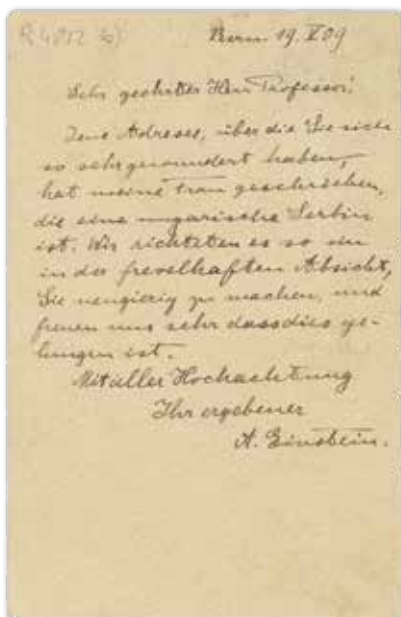 R 4812 b)
Bern 19. V 09
Sehr geehrter Herr Professor!
Jene Adresse, über die Sie sich
so sehr gewundert haben,
hat meine Frau geschrieben,
die eine ungarische Serbin
ist. Wir richteten es so ein
in der frevelhaften Absicht,
Sie neugierig zu machen, und
freuen uns sehr dass dies ge-
lungen ist.
Mit aller Hochachtung
Ihr ergebener
A. Einstein.